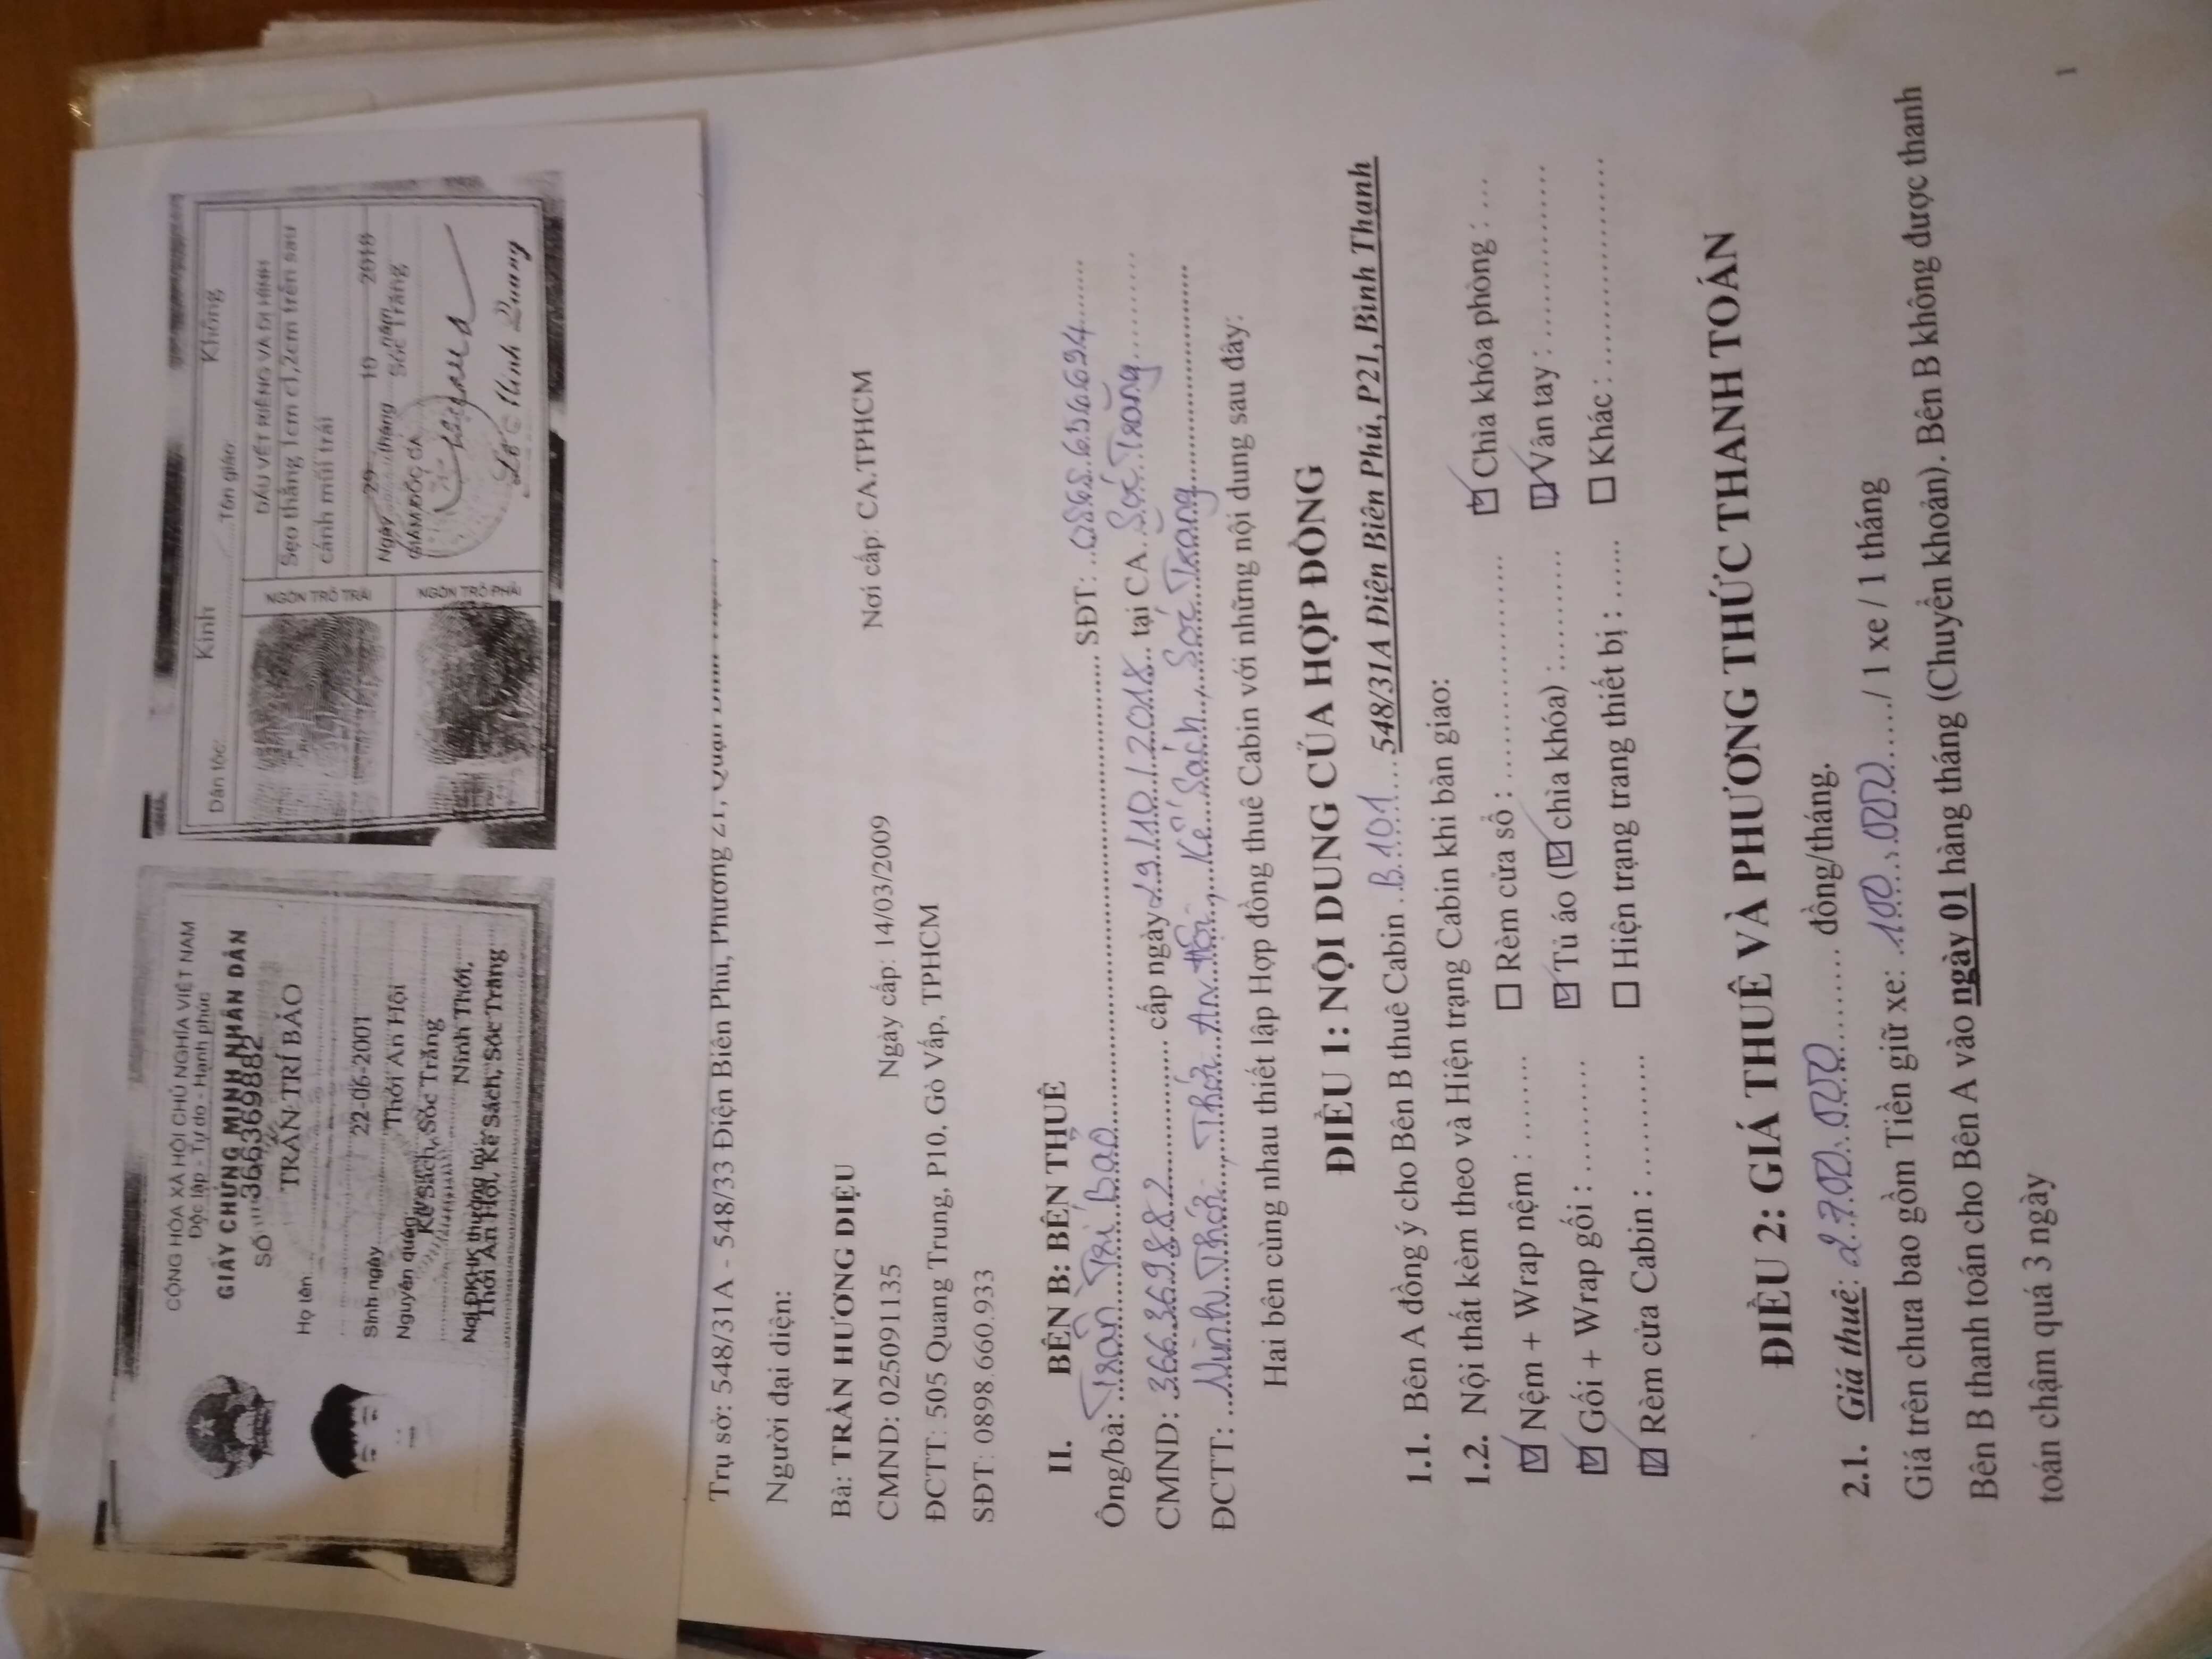 CỘNG HÒA XÃ HỘI CHỦ NGHĨA VIỆT NAM
Độc lập - Tự do - Hạnh phúc
GIẤY CHỨNG MINH NHÂN DÂN
SỐ 366369882
Họ tên: TRẦN TRÍ BẢO
Sinh ngày 22-06-2001
Nguyên quán Thới An Hội
Kế Sách, Sóc Trăng
Nơi ĐKHK thường trú Ninh Thới,
Thới An Hội, Kế Sách, Sóc Trăng
Dân tộc: Kinh Tôn giáo Không
NGÓN TRỎ TRÁI
NGÓN TRỎ PHẢI
DẤU VẾT RIÊNG VÀ DỊ HÌNH
Sẹo thẳng 1cm c1,2cm trên sau
cánh mũi trái
Ngày 29 tháng 10 năm 2018
GIÁM ĐỐC CA Sóc Trăng
Minh Quang
Trụ sở: 548/31A - 548/33 Điện Biên Phủ, Phường 21,
Người đại diện:
Bà: TRẦN HƯƠNG DIỆU
CMND: 025091135 Ngày cấp: 14/03/2009 Nơi cấp: CA.TPHCM
ĐCTT: 505 Quang Trung, P10, Gò Vấp, TPHCM
SĐT: 0898.660.933
II. BÊN B: BÊN THUÊ
Ông/bà: Trần Trí Bảo SĐT:
CMND: 366369882 cấp ngày 29/10/2018 tại CA Sóc Trăng
ĐCTT: Ninh Thới, Thới An Hội, Kế Sách, Sóc Trăng
Hai bên cùng nhau thiết lập Hợp đồng thuê Cabin với những nội dung sau đây:
ĐIỀU 1: NỘI DUNG CỦA HỢP ĐỒNG
1.1. Bên A đồng ý cho Bên B thuê Cabin B101 548/31A Điện Biên Phủ, P21, Bình Thạnh
1.2. Nội thất kèm theo và Hiện trạng Cabin khi bàn giao:
☑ Nệm + Wrap nệm : ........ ☐ Rèm cửa sổ : ........ ☑ Chìa khóa phòng : ...
☑ Gối + Wrap gối : ........ ☑ Tủ áo (☑ chìa khóa) : ........ ☑ Vân tay : ........
☑ Rèm cửa Cabin : ........ ☐ Hiện trạng trang thiết bị : ...... ☐ Khác : ........
ĐIỀU 2: GIÁ THUÊ VÀ PHƯƠNG THỨC THANH TOÁN
2.1. Giá thuê: 2.700.000 đồng/tháng.
Giá trên chưa bao gồm Tiền giữ xe: 100.000 / 1 xe / 1 tháng
Bên B thanh toán cho Bên A vào ngày 01 hàng tháng (Chuyển khoản). Bên B không được thanh
toán chậm quá 3 ngày
1